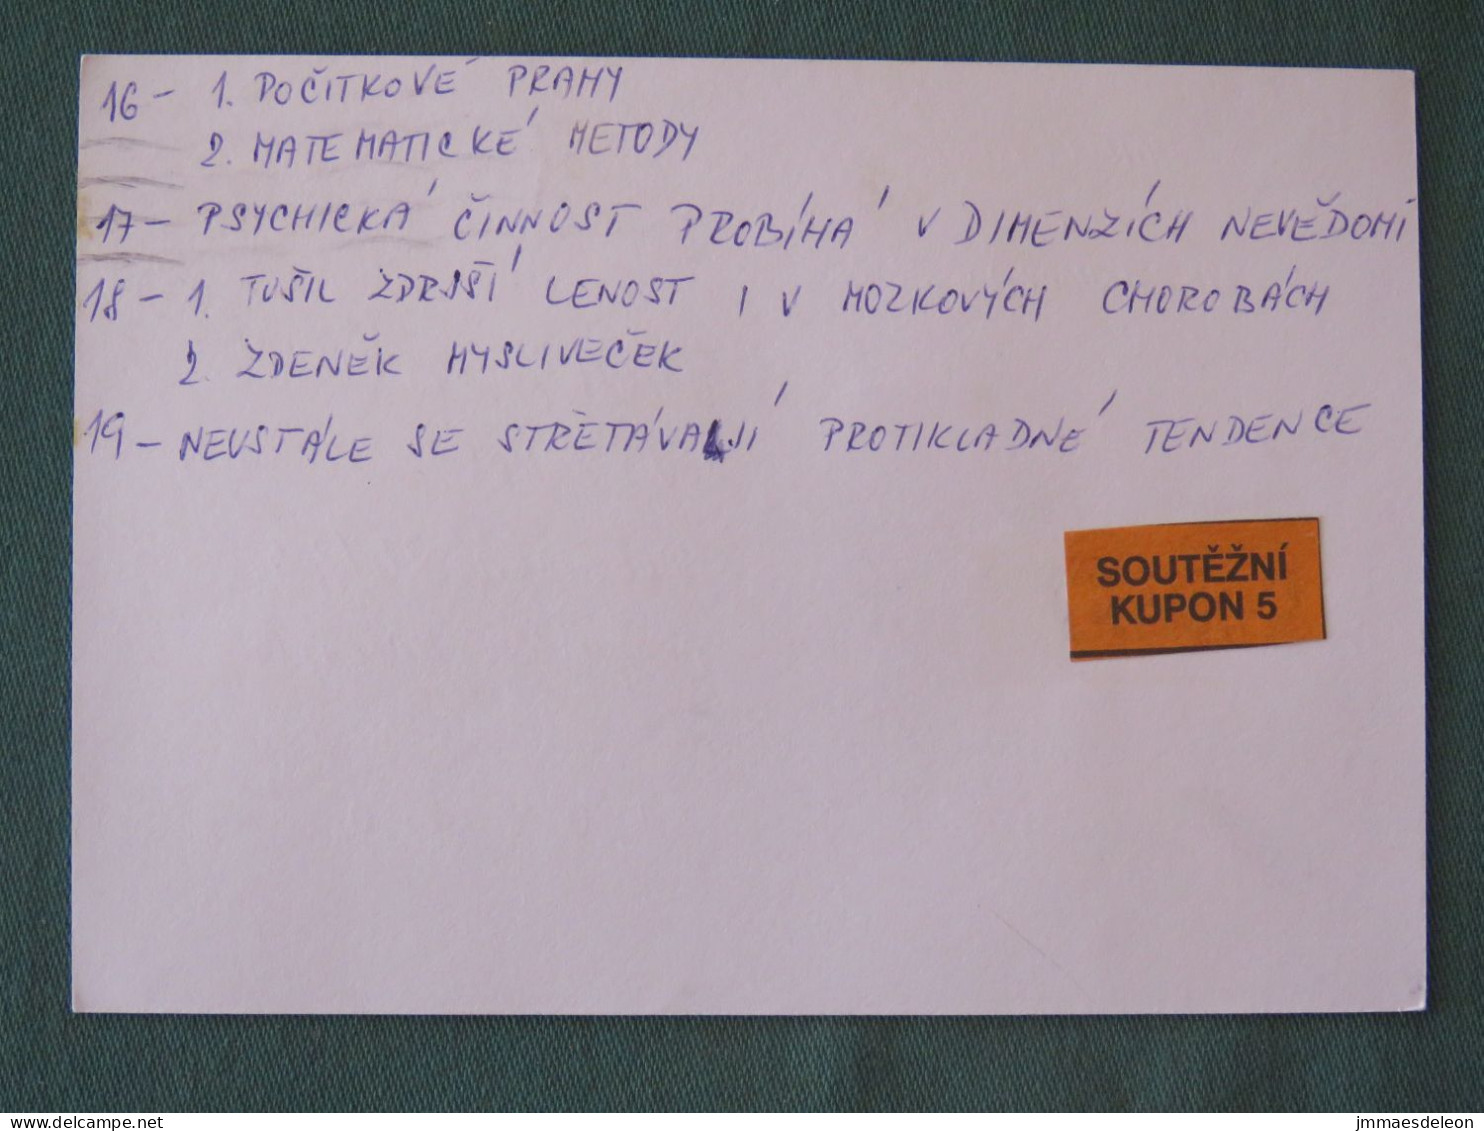 16 - 1. POČITKOVÉ PRAHY
2. MATEMATICKÉ METODY
17 - PSYCHICKÁ ČINNOST PROBÍHÁ V DIMENZÍCH NEVĚDOMÍ
18 - 1. TUŠIL ZDEJŠÍ LENOST I V MOZKOVÝCH CHOROBÁCH
2. ZDENĚK MYSLIVEČEK
19 - NEUSTÁLE SE STŘETÁVAJÍ PROTIKLADNÉ TENDENCE
SOUTĚŽNÍ
KUPON 5
delcampe.net
jmmaesdeleon